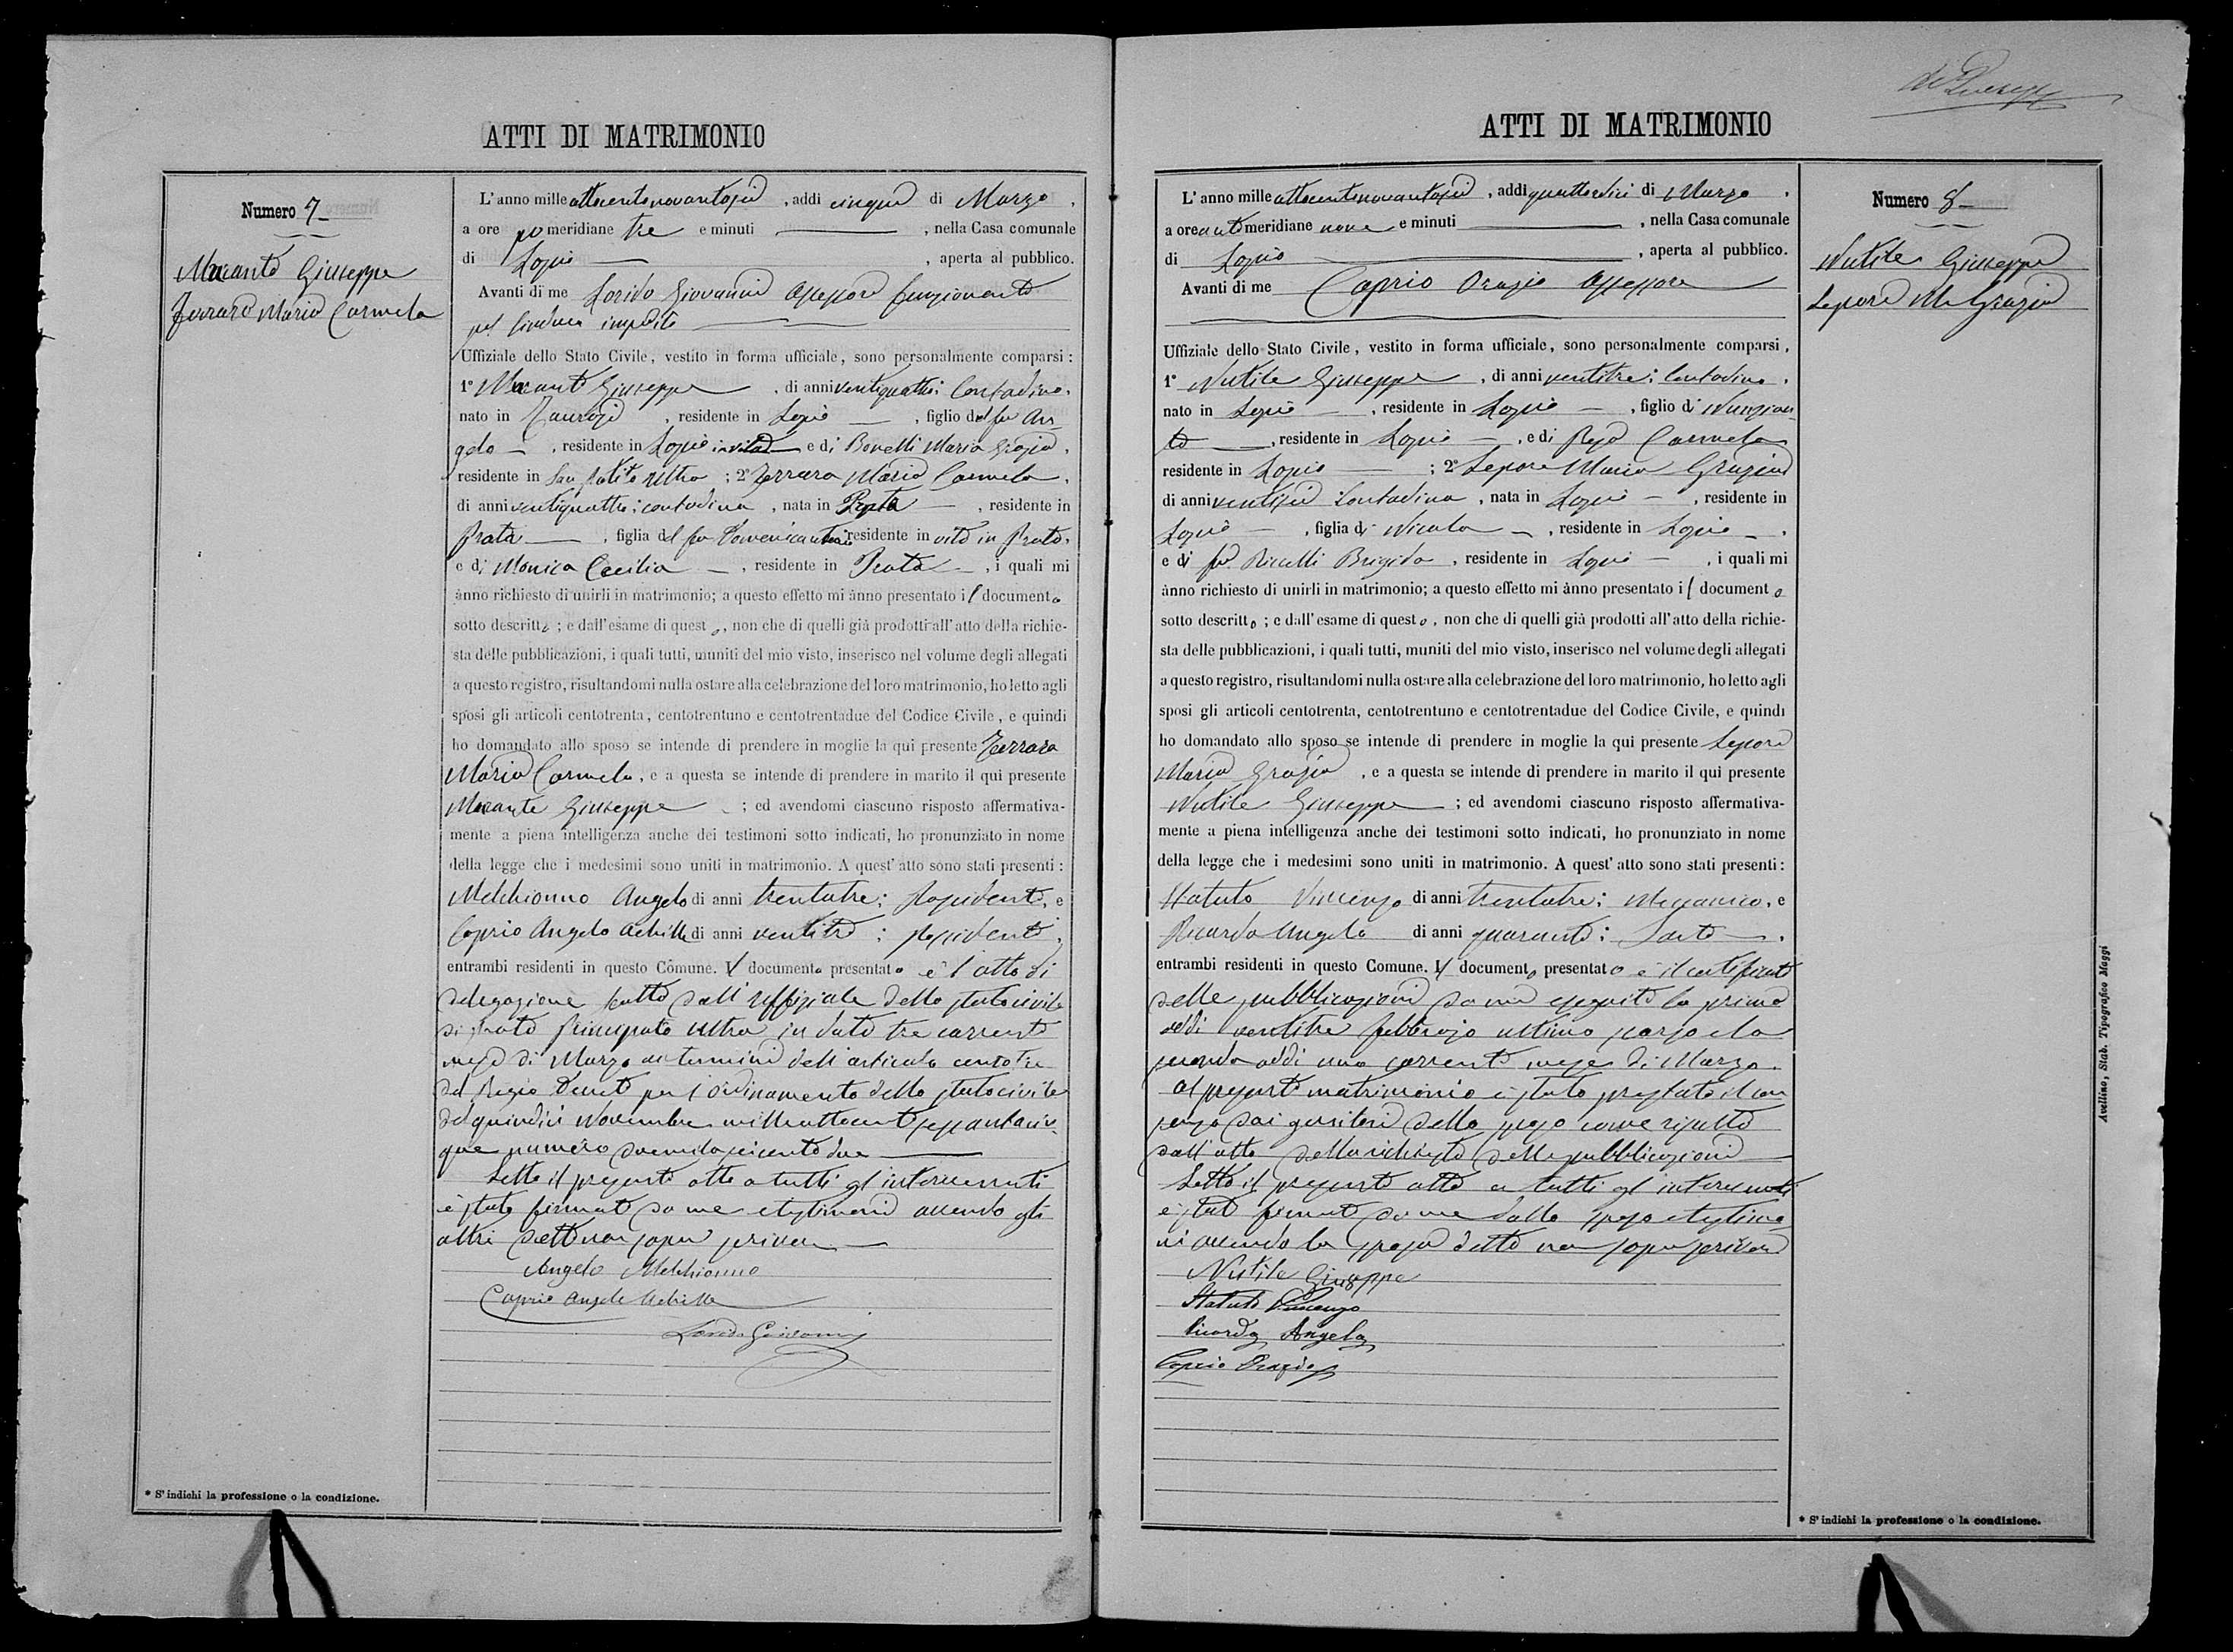 ATTI DI MATRIMONIO
Numero 7
Giuseppe
Ferrara Maria Carmela
L'anno mille ottocentonovantasei, addì cinque di Marzo,
a ore po meridiane tre e minuti —, nella Casa comunale
di Lapio —, aperta al pubblico.
Avanti di me Giovanni Assessore funzionante
pel Sindaco impedito
Uffiziale dello Stato Civile, vestito in forma ufficiale, sono personalmente comparsi:
1° Giuseppe, di anni ventiquattro; Contadino,
nato in Taurasi, residente in Lapio —, figlio del fu An-
gelo —, residente in Lapio in vita e di Bonelli Maria Grazia,
residente in San Potito Ultra; 2° Ferrara Maria Carmela,
di anni ventiquattro; contadina, nata in Prata —, residente in
Prata —, figlia del fu Domenicantonio residente in vita in Prata,
e di Monica Cecilia —, residente in Prata —, i quali mi
ànno richiesto di unirli in matrimonio; a questo effetto mi ànno presentato il documento
sotto descritto; e dall'esame di questo, non che di quelli già prodotti all'atto della richie-
sta delle pubblicazioni, i quali tutti, muniti del mio visto, inserisco nel volume degli allegati
a questo registro, risultandomi nulla ostare alla celebrazione del loro matrimonio, ho letto agli
sposi gli articoli centotrenta, centotrentuno e centotrentadue del Codice Civile, e quindi
ho domandato allo sposo se intende di prendere in moglie la qui presente Ferrara
Maria Carmela, e a questa se intende di prendere in marito il qui presente
Giuseppe —; ed avendomi ciascuno risposto affermativa-
mente a piena intelligenza anche dei testimoni sotto indicati, ho pronunziato in nome
della legge che i medesimi sono uniti in matrimonio. A quest'atto sono stati presenti:
Melchionno Angelo di anni trentatre; Possidente, e
Caprio Angelo Achille di anni ventitre; possidente,
entrambi residenti in questo Comune. Il documento presentato è l'atto di
delegazione fatta dall'uffiziale dello stato civile
di Prata Principato Ultra in data tre corrente
mese di Marzo ai termini dell'articolo centotre
del Regio Decreto per l'ordinamento dello stato civile
del quindici Novembre milleottocentosessantacin-
que numero duemilaseicentodue —
Letto il presente atto a tutti gl'intervenuti
è stato firmato da me e testimoni avendo gli
altri detto non saper scrivere —
Angelo Melchionno
Caprio Angelo Achille
Giovanni
* S'indichi la professione o la condizione.
ATTI DI MATRIMONIO
Numero 8
Nutile Giuseppe
Lepore Ma Grazia
L'anno mille ottocentonovantasei, addì quattordici di Marzo,
a ore anti meridiane nove e minuti —, nella Casa comunale
di Lapio —, aperta al pubblico.
Avanti di me Caprio Orazio Assessore
Uffiziale dello Stato Civile, vestito in forma ufficiale, sono personalmente comparsi,
1° Nutile Giuseppe, di anni ventitre; Contadino,
nato in Lapio —, residente in Lapio —, figlio di Nunzian-
te —, residente in Lapio —, e di Carmela
residente in Lapio —; 2° Lepore Maria Grazia
di anni ventisei Contadina, nata in Lapio —, residente in
Lapio —, figlia di Nicola —, residente in Lapio —,
e di fu Brigida, residente in Lapio —, i quali mi
ànno richiesto di unirli in matrimonio; a questo effetto mi ànno presentato il documento
sotto descritto; e dall'esame di questo, non che di quelli già prodotti all'atto della richie-
sta delle pubblicazioni, i quali tutti, muniti del mio visto, inserisco nel volume degli allegati
a questo registro, risultandomi nulla ostare alla celebrazione del loro matrimonio, ho letto agli
sposi gli articoli centotrenta, centotrentuno e centotrentadue del Codice Civile, e quindi
ho domandato allo sposo se intende di prendere in moglie la qui presente Lepore
Maria Grazia, e a questa se intende di prendere in marito il qui presente
Nutile Giuseppe —; ed avendomi ciascuno risposto affermativa-
mente a piena intelligenza anche dei testimoni sotto indicati, ho pronunziato in nome
della legge che i medesimi sono uniti in matrimonio. A quest'atto sono stati presenti:
Statuto Vincenzo di anni trentatre; Meccanico, e
Picardo Angelo di anni quaranta; Sarto —,
entrambi residenti in questo Comune. Il documento presentato è il certificato
delle pubblicazioni da me eseguite la prima
addì ventitre febbraio ultimo scorso e la
seconda addì uno corrente mese di Marzo.
Al presente matrimonio è stato prestato il con
senso dai genitori dello sposo come risulta
dall'atto della richiesta delle pubblicazioni
Letto il presente atto a tutti gl'intervenuti
è stato firmato da me dallo sposo e testimo-
ni avendo la sposa detto non saper scrivere
Nutile Giuseppe
Statuto Vincenzo
Picardo Angelo
Caprio Orazio
* S'indichi la professione o la condizione.
Avellino, Stab. Tipografico Maggi